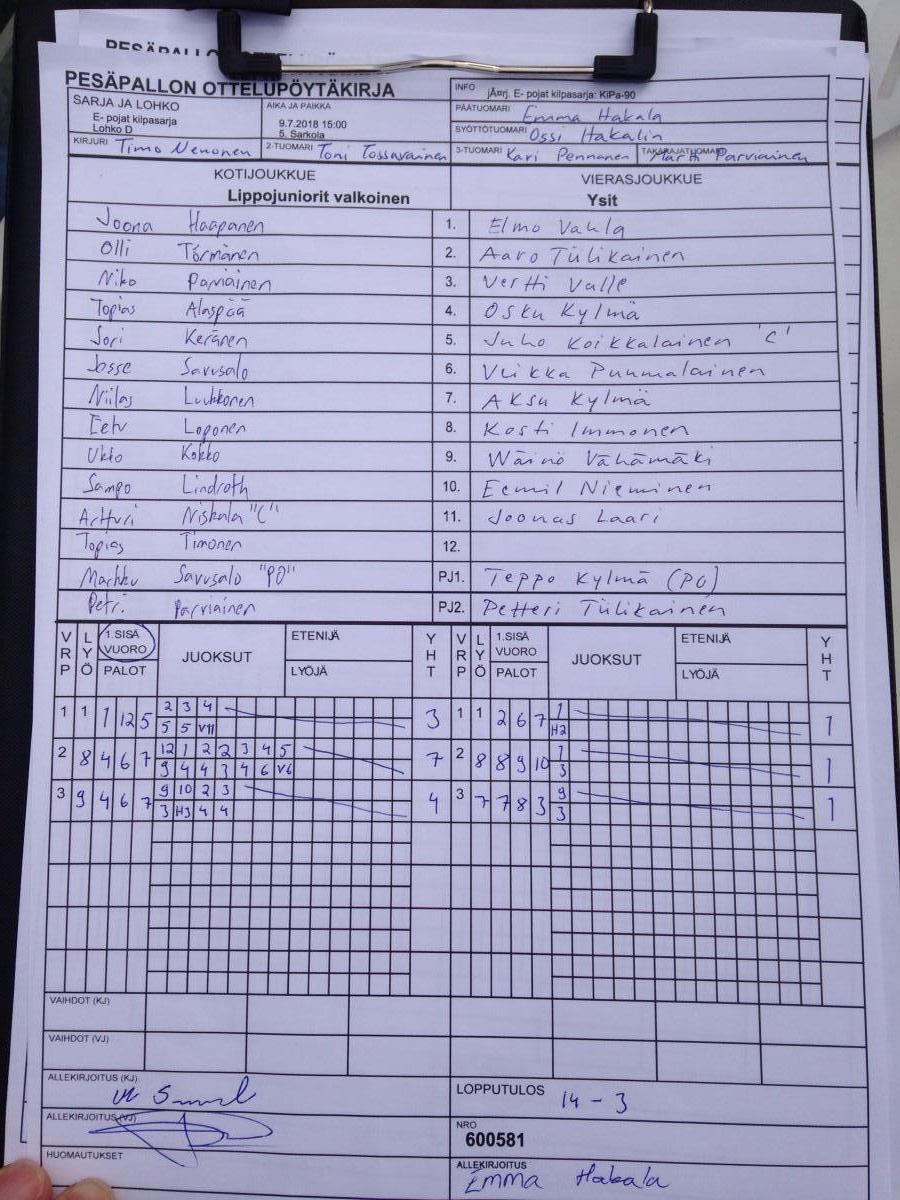 PESÄPALLON OTTELUPÖYTÄKIRJA
INFO jÃ¤rj. E- pojat kilpasarja: KiPa-90
SARJA JA LOHKO
E- pojat kilpasarja
Lohko D
AIKA JA PAIKKA
9.7.2018 15:00
5. Sarkola
PÄÄTUOMARI Emma Hakala
SYÖTTÖTUOMARI Ossi Hakalin
KIRJURI Timo Nenonen 2-TUOMARI Toni Tossavainen 3-TUOMARI Kari Pennanen TAKARAJATUOMARI Martti Parviainen
KOTIJOUKKUE VIERASJOUKKUE
Lippojuniorit valkoinen Ysit
Joona Haapanen 1. Elmo Vaula
Olli Törmänen 2. Aaro Tülikainen
Niko Parviainen 3. Vertti Valle
Topias Alaspää 4. Osku Kylmä
Jori Keränen 5. Juho Koikkalainen 'C'
Josse Savusalo 6. Veikka Puumalainen
Niilas Luukkonen 7. Aksu Kylmä
Eetu Loponen 8. Kosti Immonen
Ukko Kokko 9. Wäinö Vähämäki
Sampo Lindroth 10. Eemil Nieminen
Artturi Niskala "C" 11. Joonas Laari
Topias Timonen 12.
Markku Savusalo "PO" PJ1. Teppo Kylmä (PO)
Petri Parviainen PJ2. Petteri Tülikainen
VRP LYÖ 1.SISÄ VUORO PALOT JUOKSUT ETENIJÄ LYÖJÄ YHT VRP LYÖ 1.SISÄ VUORO PALOT JUOKSUT ETENIJÄ LYÖJÄ YHT
1 1 1 12 5 2 3 4 3 1 1 2 6 7 1 1
5 5 VII H2
2 8 4 6 7 12 1 2 2 3 4 5 7 2 8 8 9 10 1 1
9 4 4 3 4 6 V6 3
3 9 4 6 7 9 10 2 3 4 3 7 7 8 3 9 1
3 H3 4 4 3
VAIHDOT (KJ)
VAIHDOT (VJ)
ALLEKIRJOITUS (KJ)
LOPPUTULOS 14 - 3
ALLEKIRJOITUS (VJ)
NRO
600581
HUOMAUTUKSET
ALLEKIRJOITUS
Emma Hakala